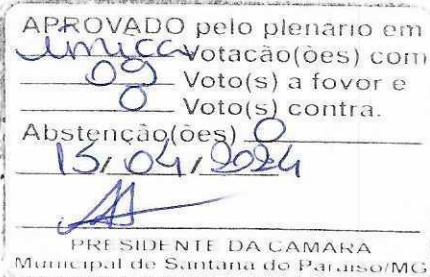 APROVADO pelo plenario em
única Votação(ões) com
09 Voto(s) a favor e
0 Voto(s) contra.
Abstenção(ões) 0
15/04/2024
PRESIDENTE DA CAMARA
Municipal de Santana do Paraiso/MG